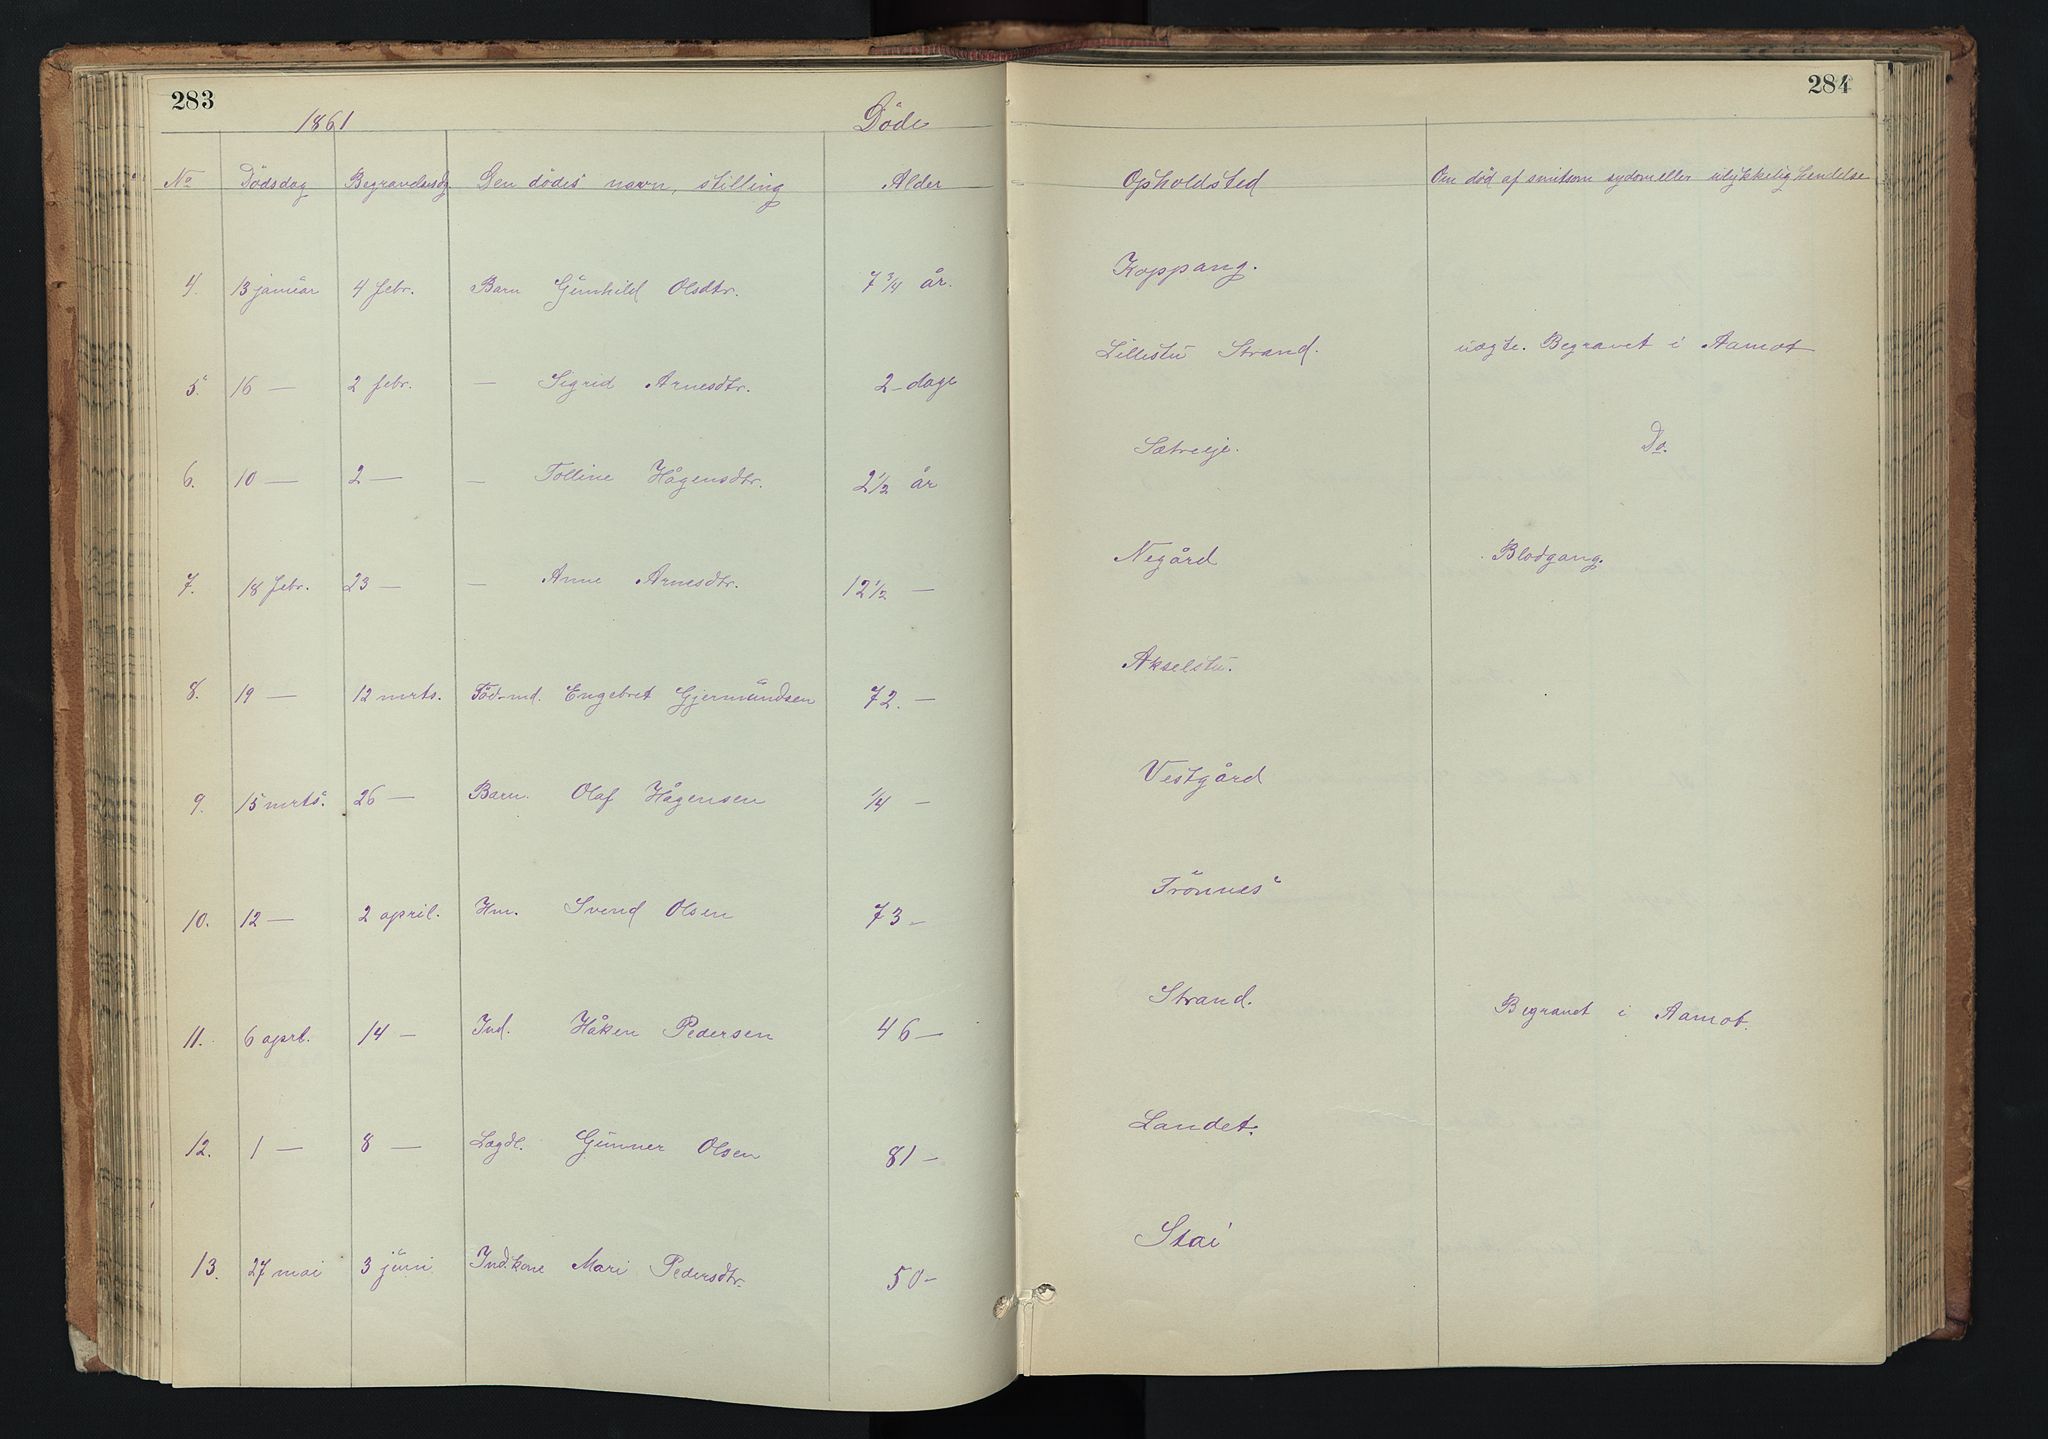 283
1861 Döde
No Dödsdag Begravelsesdg Den dödes navn, stilling Alder
4. 13 januar 4 febr. Barn Gunhild Olsdtr. 7 3/4 år.
5. 16 — 2 febr. — Sigrid Arnesdtr. 2 dage
6. 10 — 2 — — Tolline Hågensdtr. 2 1/2 år
7. 18 febr. 23 — — Anne Arnesdtr. 12 1/2 —
8. 19 — 12 mrts. Föd.md. Engebret Gjermundsen 72. —
9. 15 mrts. 26 — Barn. Olaf Hågensen 1/4 —
10. 12 — 2 april. Hm. Svend Olsen 73 —
11. 6 aprl. 14 — Ind. Håken Pedersen 46 —
12. 1 — 8 — Lægdl. Gunner Olsen 81 —
13. 27 mai 3 juni Ind.kone Mari Pedersdtr. 50 —
284
Opholdsted Om död af smitsom sydom eller ulykkelig hendelse
Koppang.
Lillestu Strand. uægte. Begravet i Aamot
Sætreeje. Do.
Negård Blodgang.
Akselstu.
Vestgård
Trönnes
Strand. Begravet i Aamot.
Landet.
Stai